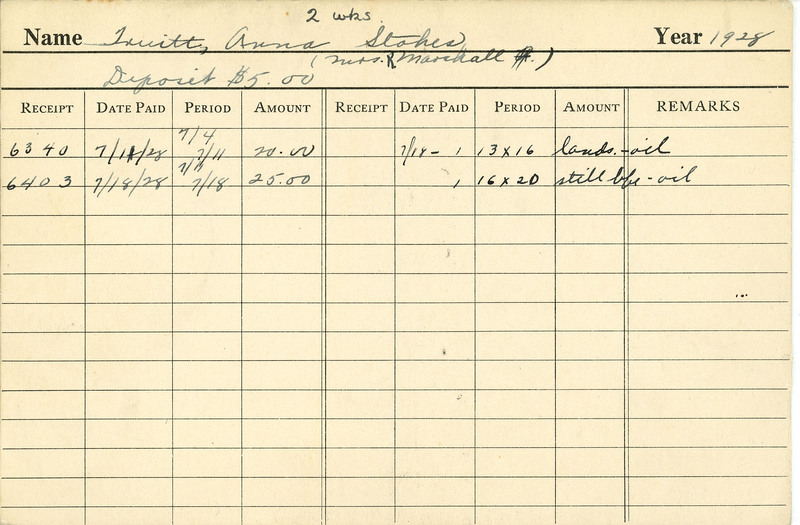 2 wks.
Name Truitt, Anna Stokes Year 1928
(Mrs. R Marshall .)
Deposit $5.00
RECEIPT DATE PAID PERIOD AMOUNT RECEIPT DATE PAID PERIOD AMOUNT REMARKS
7/4
6340 7/11/28 7/11 20.00 7/18 - 1 13 x 16 lands. - oil
7/11
6403 7/18/28 7/18 25.00 1 16 x 20 still life - oil